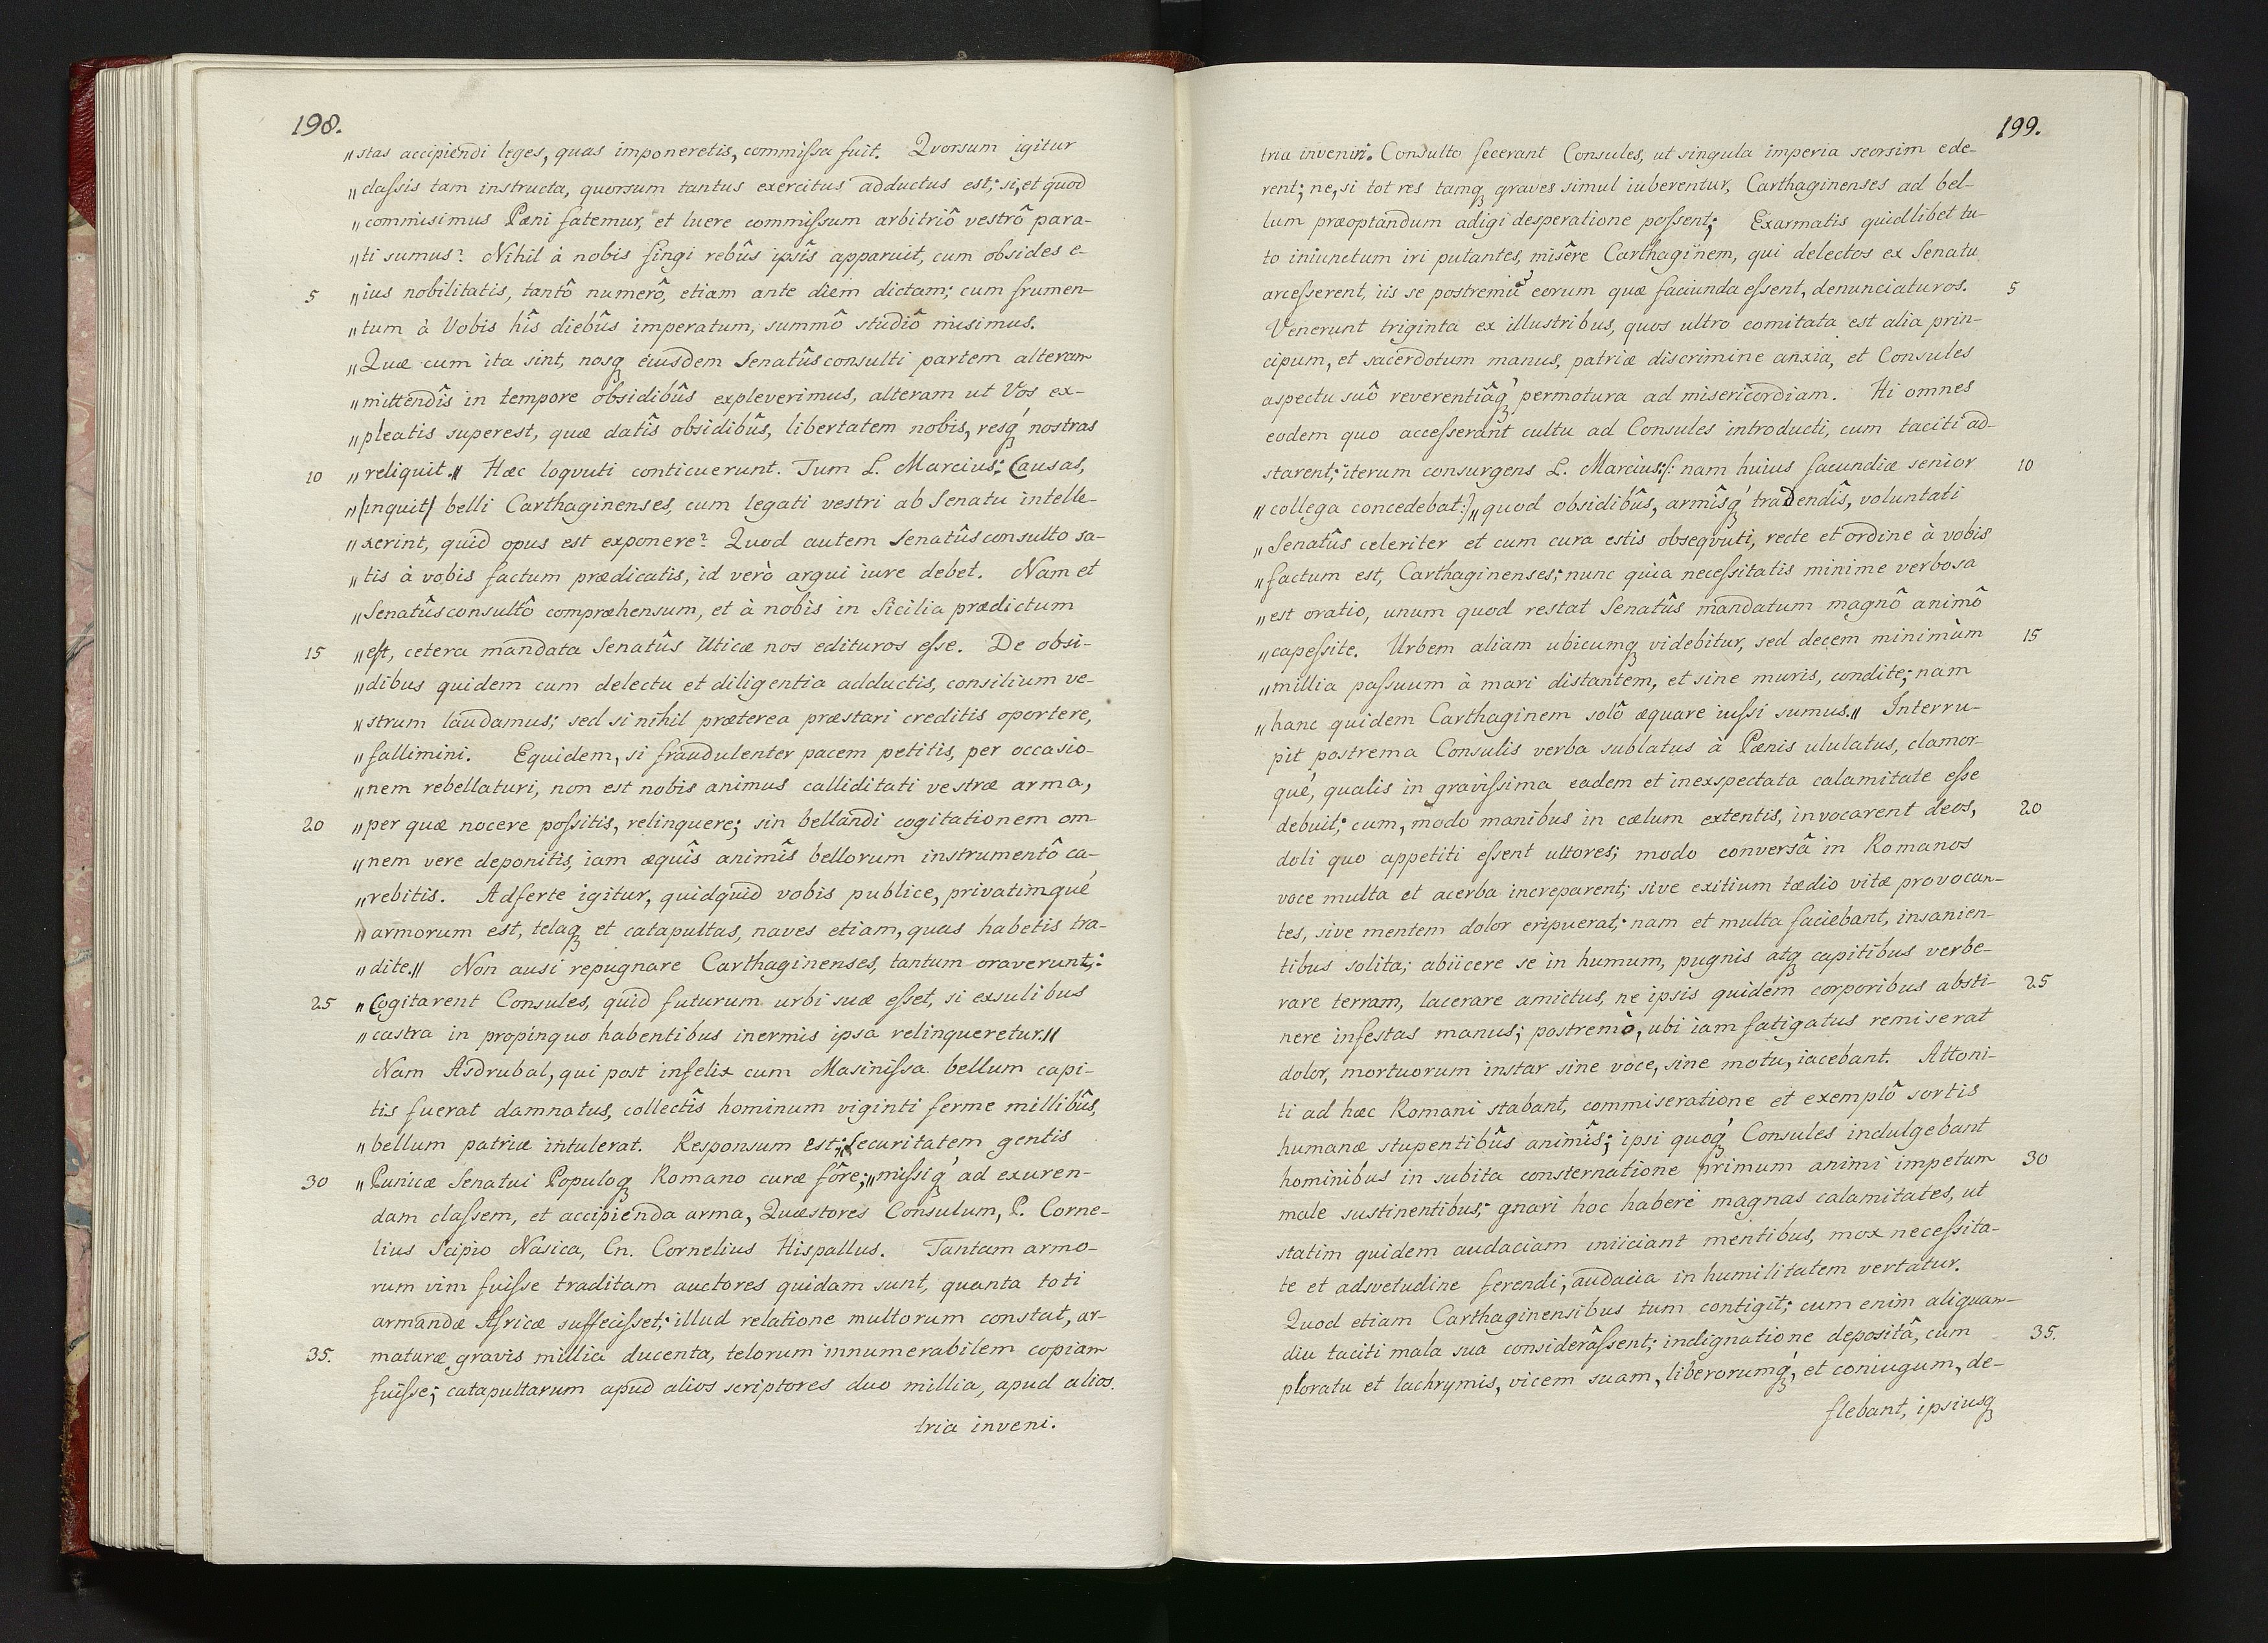 198.
„stas accipiendi leges, quas imponeretis, commiſsa fuit. Qvorsum igitur
„claſsis tam instructa, quorsum tantus exercitus adductus est; si, et quod
„commisimus Pæni fatemur, et luere commiſsum arbitriô vestrô para-
„ti sumus? Nihil à nobis fingi rebûs ipsîs apparuit, cum obsides e-
5 „ius nobilitatis, tantô numerô, etiam ante diem dictam; cum frumen-
„tum à Vobis hîs diebûs imperatum, summô studiô misimus.
„Quæ cum ita sint, nosqȝ eiusdem Senatûsconsulti partem alteram
„mittendîs in tempore obsidibûs expleverimus, alteram ut Vos ex-
„pleatis superest, quæ datîs obsidibûs, libertatem nobis, resqȝ́ nostras
10 „reliquit.„ Hæc loqvuti conticuerunt. Tum L. Marcius: Causas,
„/inquit/ belli Carthaginenses, cum legati vestri ab Senatu intelle-
„xerint, quid opus est exponere? Quod autem Senatûsconsulto sa-
„tis à vobis factum prædicatis, id verò argui iure debet. Nam et
„Senatûsconsultô compræhensum, et à nobis in Sicilia prædictum
15 „eſt, cetera mandata Senatûs Uticæ nos edituros eſse. De obsi-
„dibus quidem cum delectu et diligentia adductis, consilium ve-
„strum laudamus; sed si nihil præterea præstari creditis oportere,
„fallimini. Equidem, si fraudulenter pacem petitis, per occasio-
„nem rebellaturi, non est nobis animus calliditati vestræ arma,
20 „per quæ nocere poſsitis, relinquere; sin bellandi cogitationem om-
„nem vere deponitis, iam æquîs animîs bellorum instrumentô ca-
„rebitis. Adferte igitur, quidquid vobis publice, privatimqué
„armorum est, telaqȝ et catapultas, naves etiam, quas habetis tra-
„dite.„ Non ausi repugnare Carthaginenses, tantum oraverunt;:
25 „Cogitarent Consules, quid futurum urbi suæ eſset, si exsulibus
„castra in propinquo habentibus inermis ipsa relinqueretur.„
Nam Asdrubal, qui post infelix cum Masiniſsa bellum capi-
tis fuerat damnatus, collectîs hominum viginti ferme millibûs,
„bellum patriæ intulerat. Responsum est: Securitatem gentis
30 „Punicæ Senatui Populoqȝ Romano curæ fôre;„ miſsiqȝ́ ad exuren-
dam claſsem, et accipienda arma, Quæstores Consulum, P. Corne-
lius Scipio Nasica, Cn. Cornelius Hispallus. Tantam armo-
rum vim fuiſse traditam auctores quidam sunt, quanta toti
armandæ Africæ suffeciſset; illud relatione multorum constat, ar-
35. maturæ gravis millia ducenta, telorum innumerabilem copiam
fuiſse; catapultarum apud alios scriptores duo millia, apud alios
tria inveni.
199.
tria inveniri. Consulto fecerant Consules, ut singula imperia seorsim ede-
rent; ne, si tot res tamqȝ graves simul iuberentur, Carthaginenses ad bel-
lum præoptandum adigi desperatione poſsent; Exarmatis quidlibet tu-
to iniunctum iri putantes, misêre Carthaginem, qui delectos ex Senatu
arceſserent, iis se postremu eorum quæ faciunda eſsent, denunciaturos. 5
Venerunt triginta ex illustribus, quos ultro comitata est alia prin-
cipum, et sacerdotum manus, patriæ discrimine anxia, et Consules
aspectu suô reverentiâqȝ́ permotura ad misericordiam. Hi omnes
eodem quo acceſserant cultu ad Consules introducti, cum taciti ad-
starent; iterum consurgens L. Marcius: /: nam huius facundiæ senior 10
„collega concedebat:/ „quod obsidibûs, armîsqȝ́ tradendîs, voluntati
„Senatûs celeriter et cum cura estis obseqvuti, recte et ordine à vobis
„factum est, Carthaginenses; nunc quia neceſsitatis minime verbosa
„est oratio, unum quod restat Senatûs mandatum magnô animô
„capeſsite. Urbem aliam ubicumqȝ videbitur, sed decem minimùm 15
„millia paſsuum à mari distantem, et sine muris, condite; nam
„hanc quidem Carthaginem solô æquare iuſsi sumus.„ Interru-
pit postrema Consulis verba sublatus à Pænis ululatus, clamor-
qué, qualis in graviſsima eadem et inexspectata calamitate eſse
debuit; cum, modo manibus in cælum extentis, invocarent deos, 20
doli quo appetiti eſsent ultores; modo conversâ in Romanos
voce multa et acerba increparent; sive exitium tædio vitæ provocan-
tes, sive mentem dolor eripuerat; nam et multa faciebant, insanien-
tibus solita; abiicere se in humum, pugnis atqȝ capitibus verbe-
rare terram, lacerare amictus, ne ipsis quidem corporibus absti- 25
nere infestas manus; postremò, ubi iam fatigatus remiserat
dolor, mortuorum instar sine voce, sine motu, iacebant. Attoni-
ti ad hæc Romani stabant, commiseratione et exemplô sortis
humanæ stupentibûs animîs; ipsi quoqȝ́ Consules indulgebant
hominibus in subita consternatione primum animi impetum 30
male sustinentibus; gnari hoc habere magnas calamitates, ut
statim quidem audaciam iniiciant mentibus, mox neceſsita-
te et adsvetudine ferendi, audacia in humilitatem vertatur.
Quod etiam Carthaginensibus tum contigit; cum enim aliquam-
diu taciti mala sua considerâſsent; indignatione depositâ, cum 35.
ploratu et lachrymis, vicem suam, liberorumqȝ́, et coniugum, de-
flebant, ipsiusqȝ